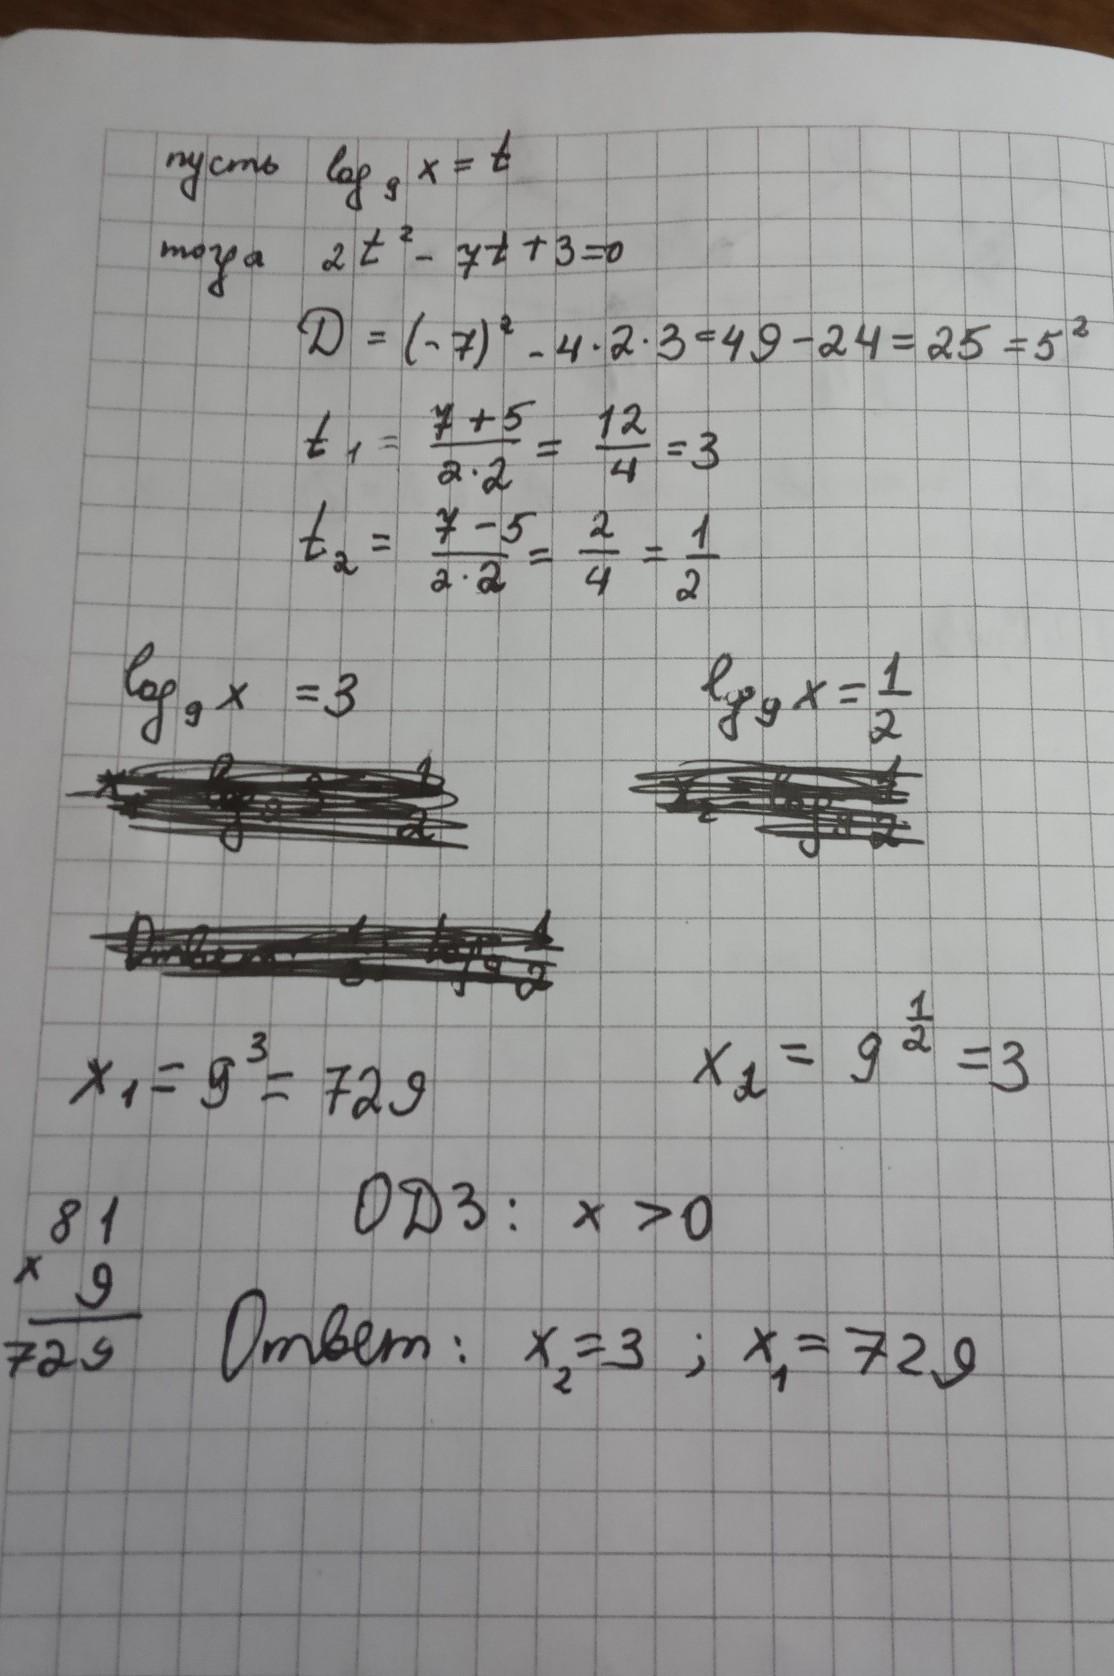 пусть log₉ x = t
тогда 2t² - 7t + 3 = 0
D = (-7)² - 4·2·3 = 49 - 24 = 25 = 5²
t₁ = (7 + 5)/(2·2) = 12/4 = 3
t₂ = (7 - 5)/(2·2) = 2/4 = 1/2
log₉ x = 3
lg₉ x = 1/2
x₁ = 9³ = 729
x₂ = 9^(1/2) = 3
81
x 9
729
ОДЗ: x > 0
Ответ: x₂ = 3 ; x₁ = 729